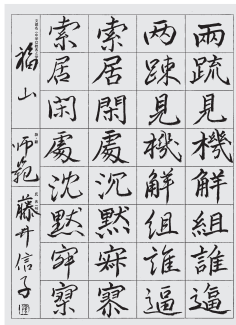 兩疏見機解組誰逼
两踈見機解組誰逼
索居閑處沉黙寂寥
索居閑處沈黙寂寥
福山 師範 藤井信子